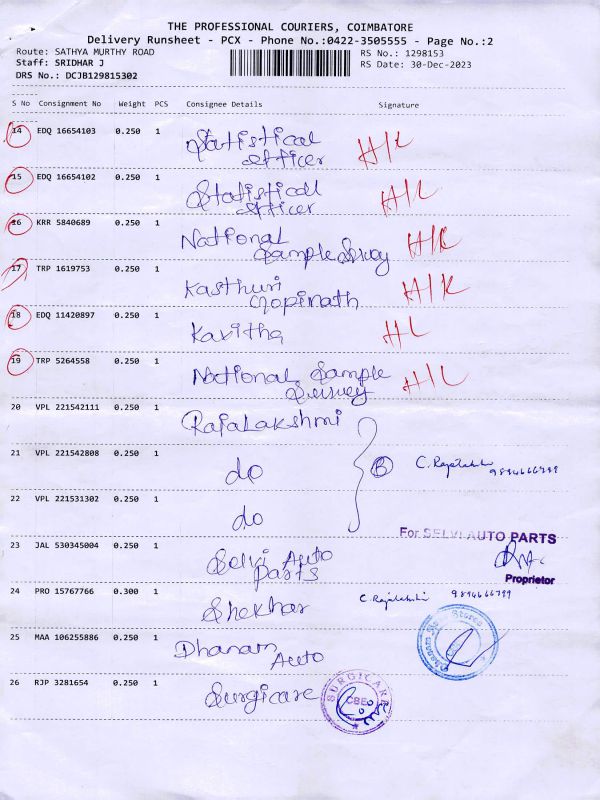 THE PROFESSIONAL COURIERS, COIMBATORE
Delivery Runsheet - PCX - Phone No.:0422-3505555 - Page No.:2
Route: SATHYA MURTHY ROAD
RS No.: 1298153
Staff: SRIDHAR J
RS Date: 30-Dec-2023
DRS No.: DCJB129815302
S No Consignment No Weight PCS Consignee Details Signature
14 EDQ 16654103 0.250 1 Statistical H/L
officer
15 EDQ 16654102 0.250 1 Statistical H/L
officer
16 KRR 5840689 0.250 1 National H/L
Sample Survey
17 TRP 1619753 0.250 1 Kasthuri H/L
Gopinath
18 EDQ 11420897 0.250 1 Kavitha H/L
19 TRP 5264558 0.250 1 National Sample H/L
Survey
20 VPL 221542111 0.250 1 RajaLakshmi
21 VPL 221542808 0.250 1 do B C. Rajalakshmi
22 VPL 221531302 0.250 1 do
For SELVI AUTO PARTS
23 JAL 530345004 0.250 1 Selvi Auto
Parts
Proprietor
24 PRO 15767766 0.300 1 Shekhar C. Rajalakshmi
25 MAA 106255886 0.250 1 Dhanam
Auto
Stores
26 RJP 3281654 0.250 1 Surgicare
SURGICARE
CBE